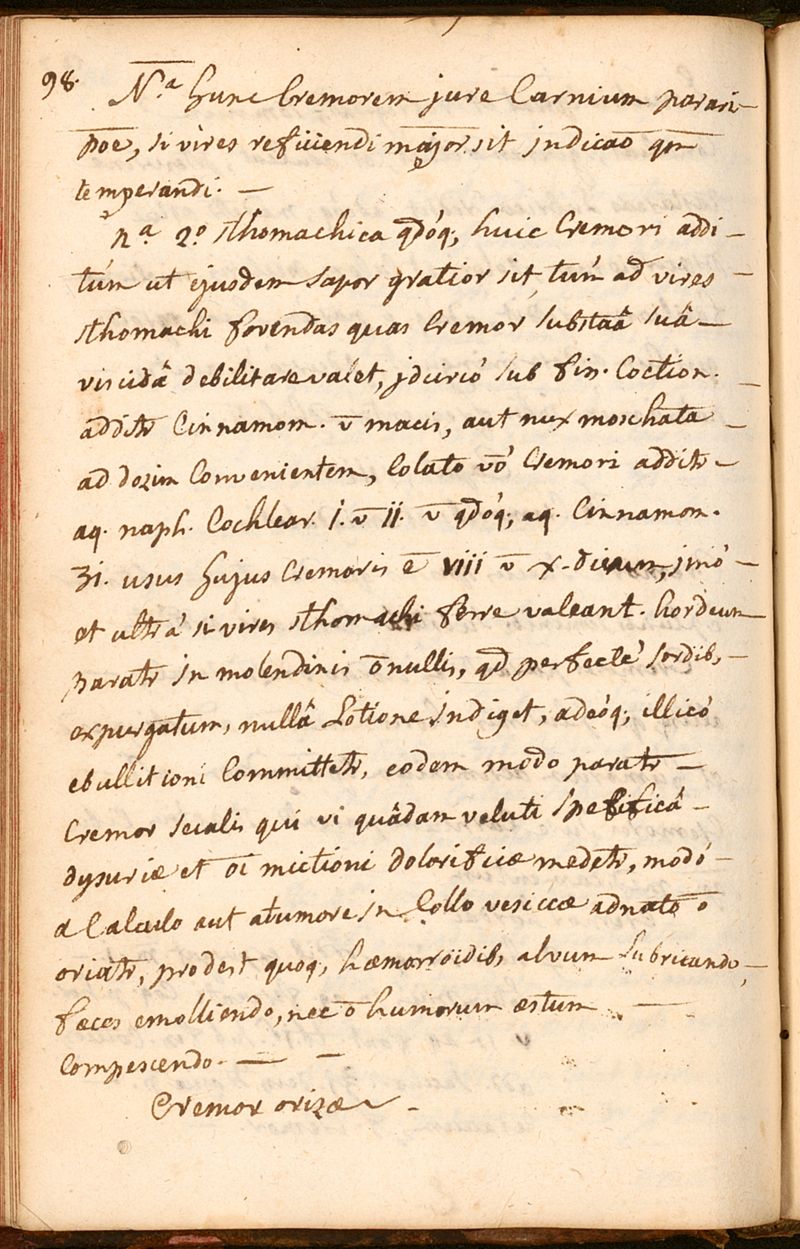 98.
N.ª hunc Cremorem jure Carnium parari
p̄o̅e, si vires reficiendi major sit jndicaō̅ q̄m
temperandi. —
n.ª 2.º sthomachica qdóq; huic Cremori addi –
túm ut ejusdem sapor gratior sit, túm ad vires –
sthomachi fovendas quas Cremor substaâ suâ –
viscidâ debilitare valet, jdcircó sub fin. Coction. –
addītr Cinnamom. v̄ macis, aut nux moschata –
ad dozim Convenientem, Colato vō Cremori addītr –
aq. naph. Cochlear. i. v̄ ii. v̄ qdóq; aq. Cinnamom.
ʒi. usus hujus Cremoris ē viii v̄ x. dierum, jmó –
et ultrá si vires sthomachi ferre valeant. hordeum
paratr in molendinis ōnullis, qd perfecté sordib, –
expurgatum, nullâ Lotione jndiget, adeóq; illicó
ebullitioni Committetr, eodem modo paratr –
Cremor secalis qui vi quâdam veluti speficificâ –
dysuriæ et oī mictioni dolorificæ medetr, modó –
a Calculo aut a tumore jn Collo vesiccæ adnato ō
oriatr, prodest quoq, hæmorroïdib, alvum Lubricando, –
fæces emolliendo, nec ō humorum æstum —
Compescendo. — –
Cremor orizæ –